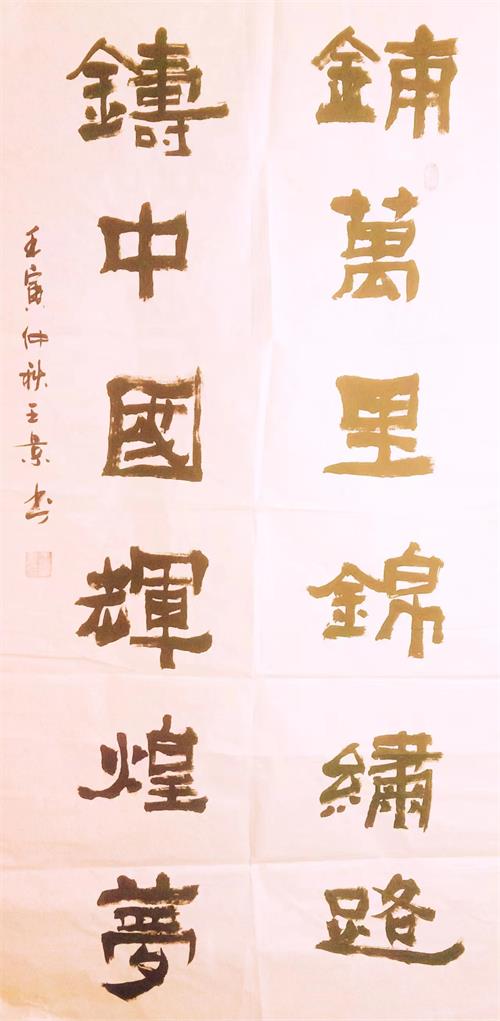 鋪萬里錦繡路
鑄中國輝煌夢
壬寅仲秋王景书